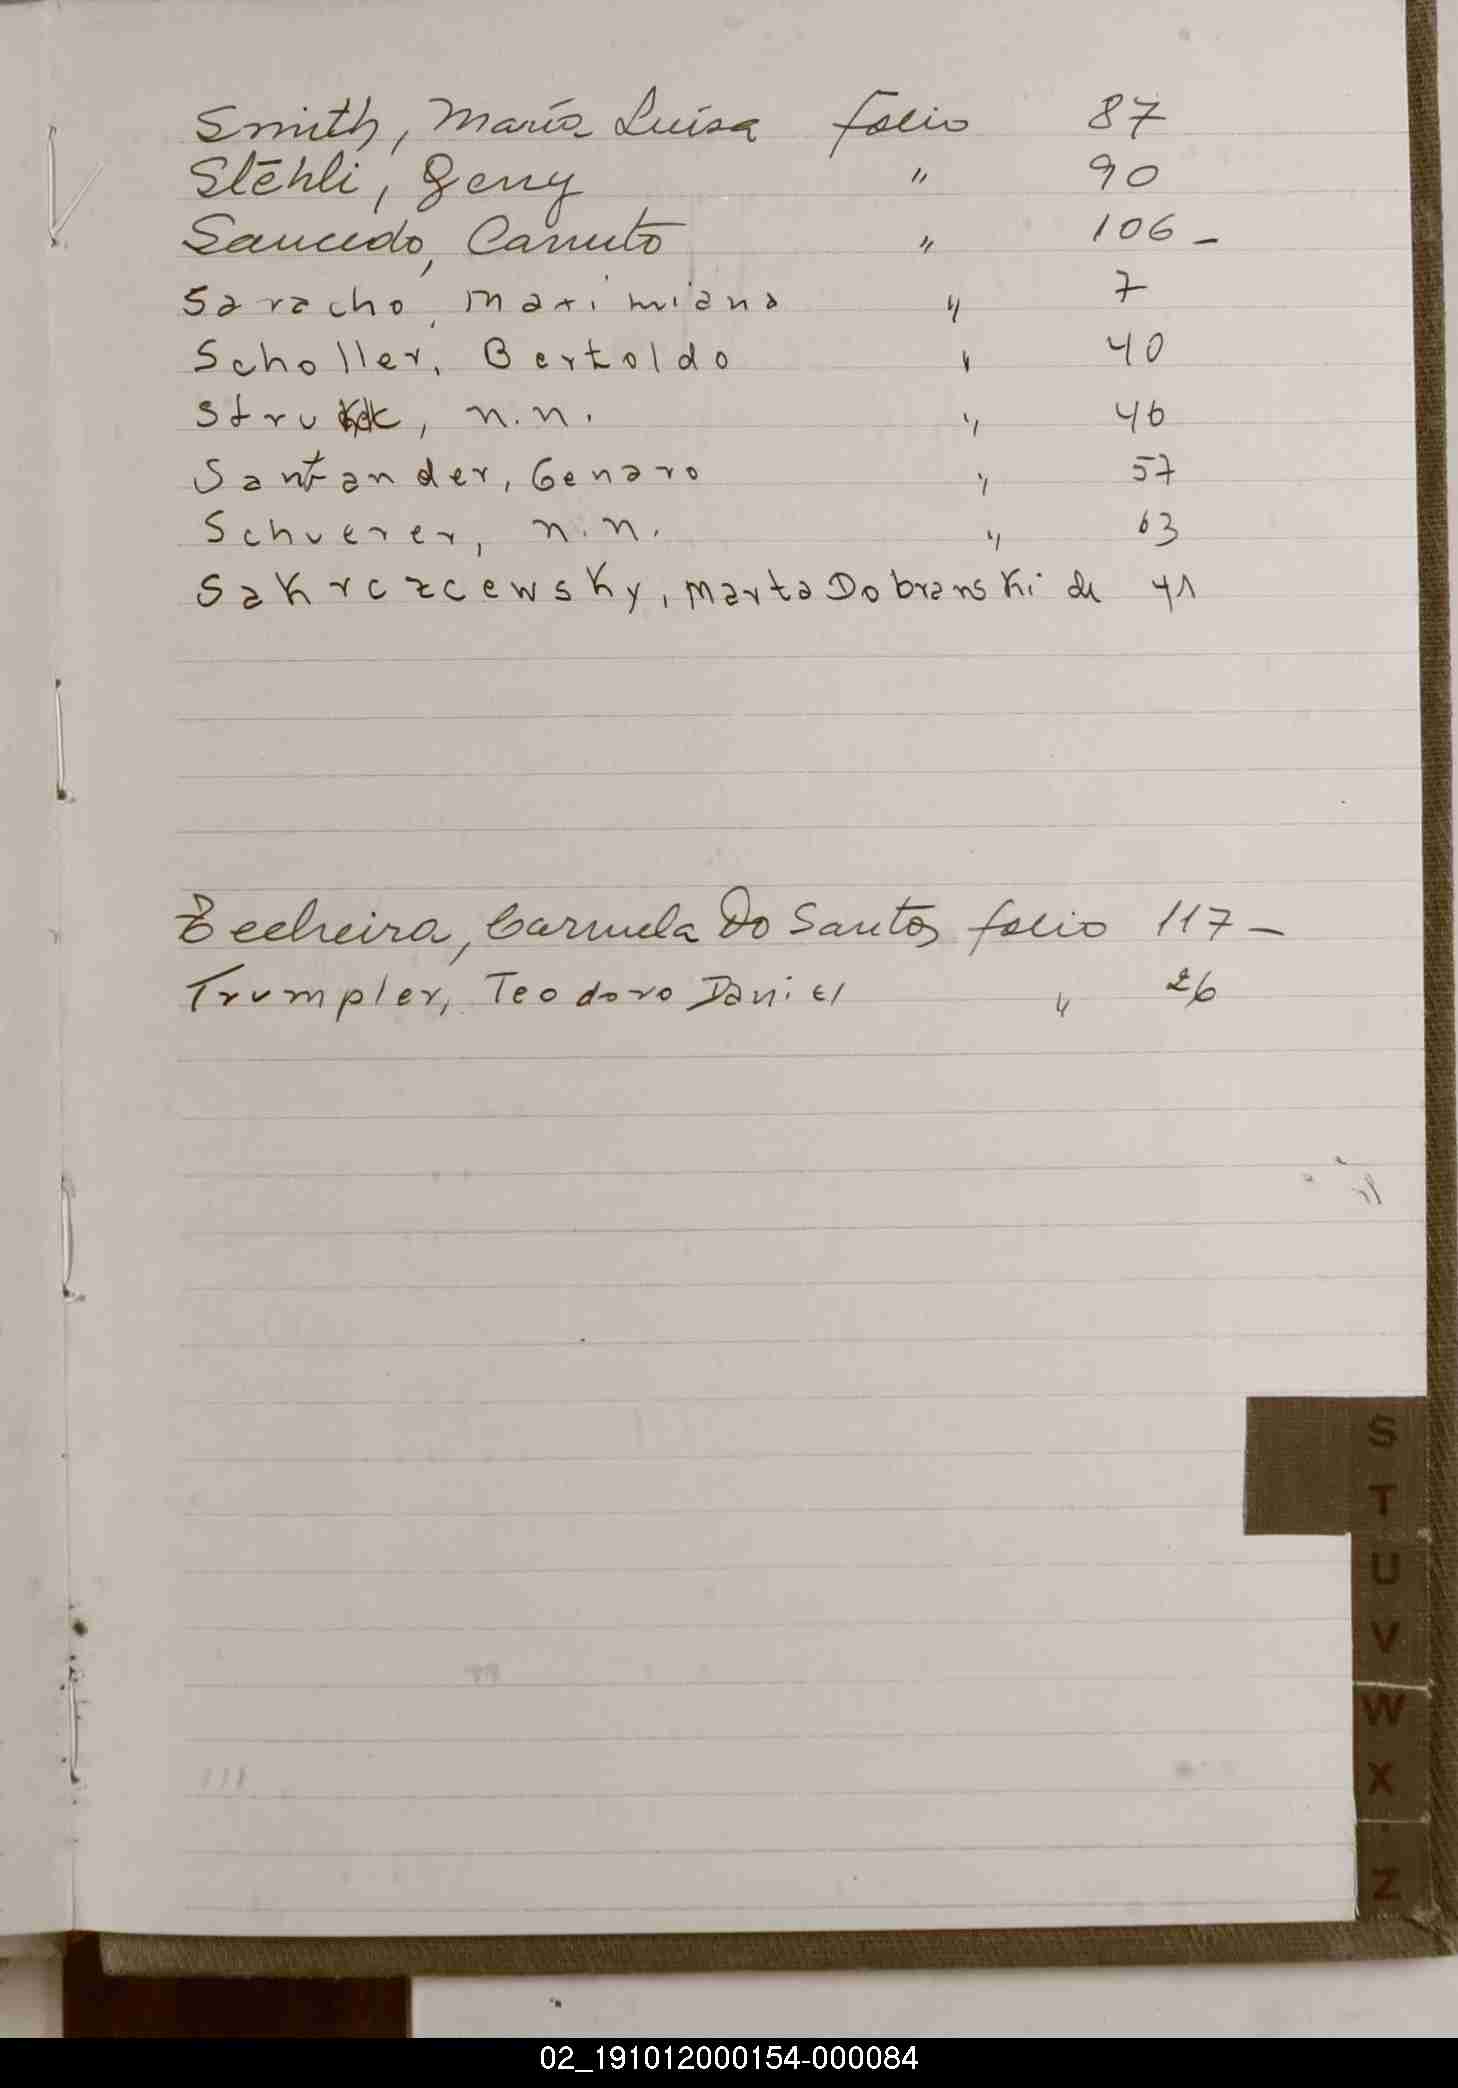 Smith, María Luisa folio 87
Stëhli, Geny " 90
Saucedo, Canuto " 106 -
Saracho, Maximiana " 7
Scholler, Bertoldo " 40
Struck, n.n. " 46
Santander, Genaro " 57
Schuerer, n.n. " 63
Sakrczcewsky, Marta Dobranski de 41
Techeira, Carmela Do Santos folio 117 -
Trumpler, Teodoro Daniel " 26
S
T
U
V
W
X
Z
02_191012000154-000084